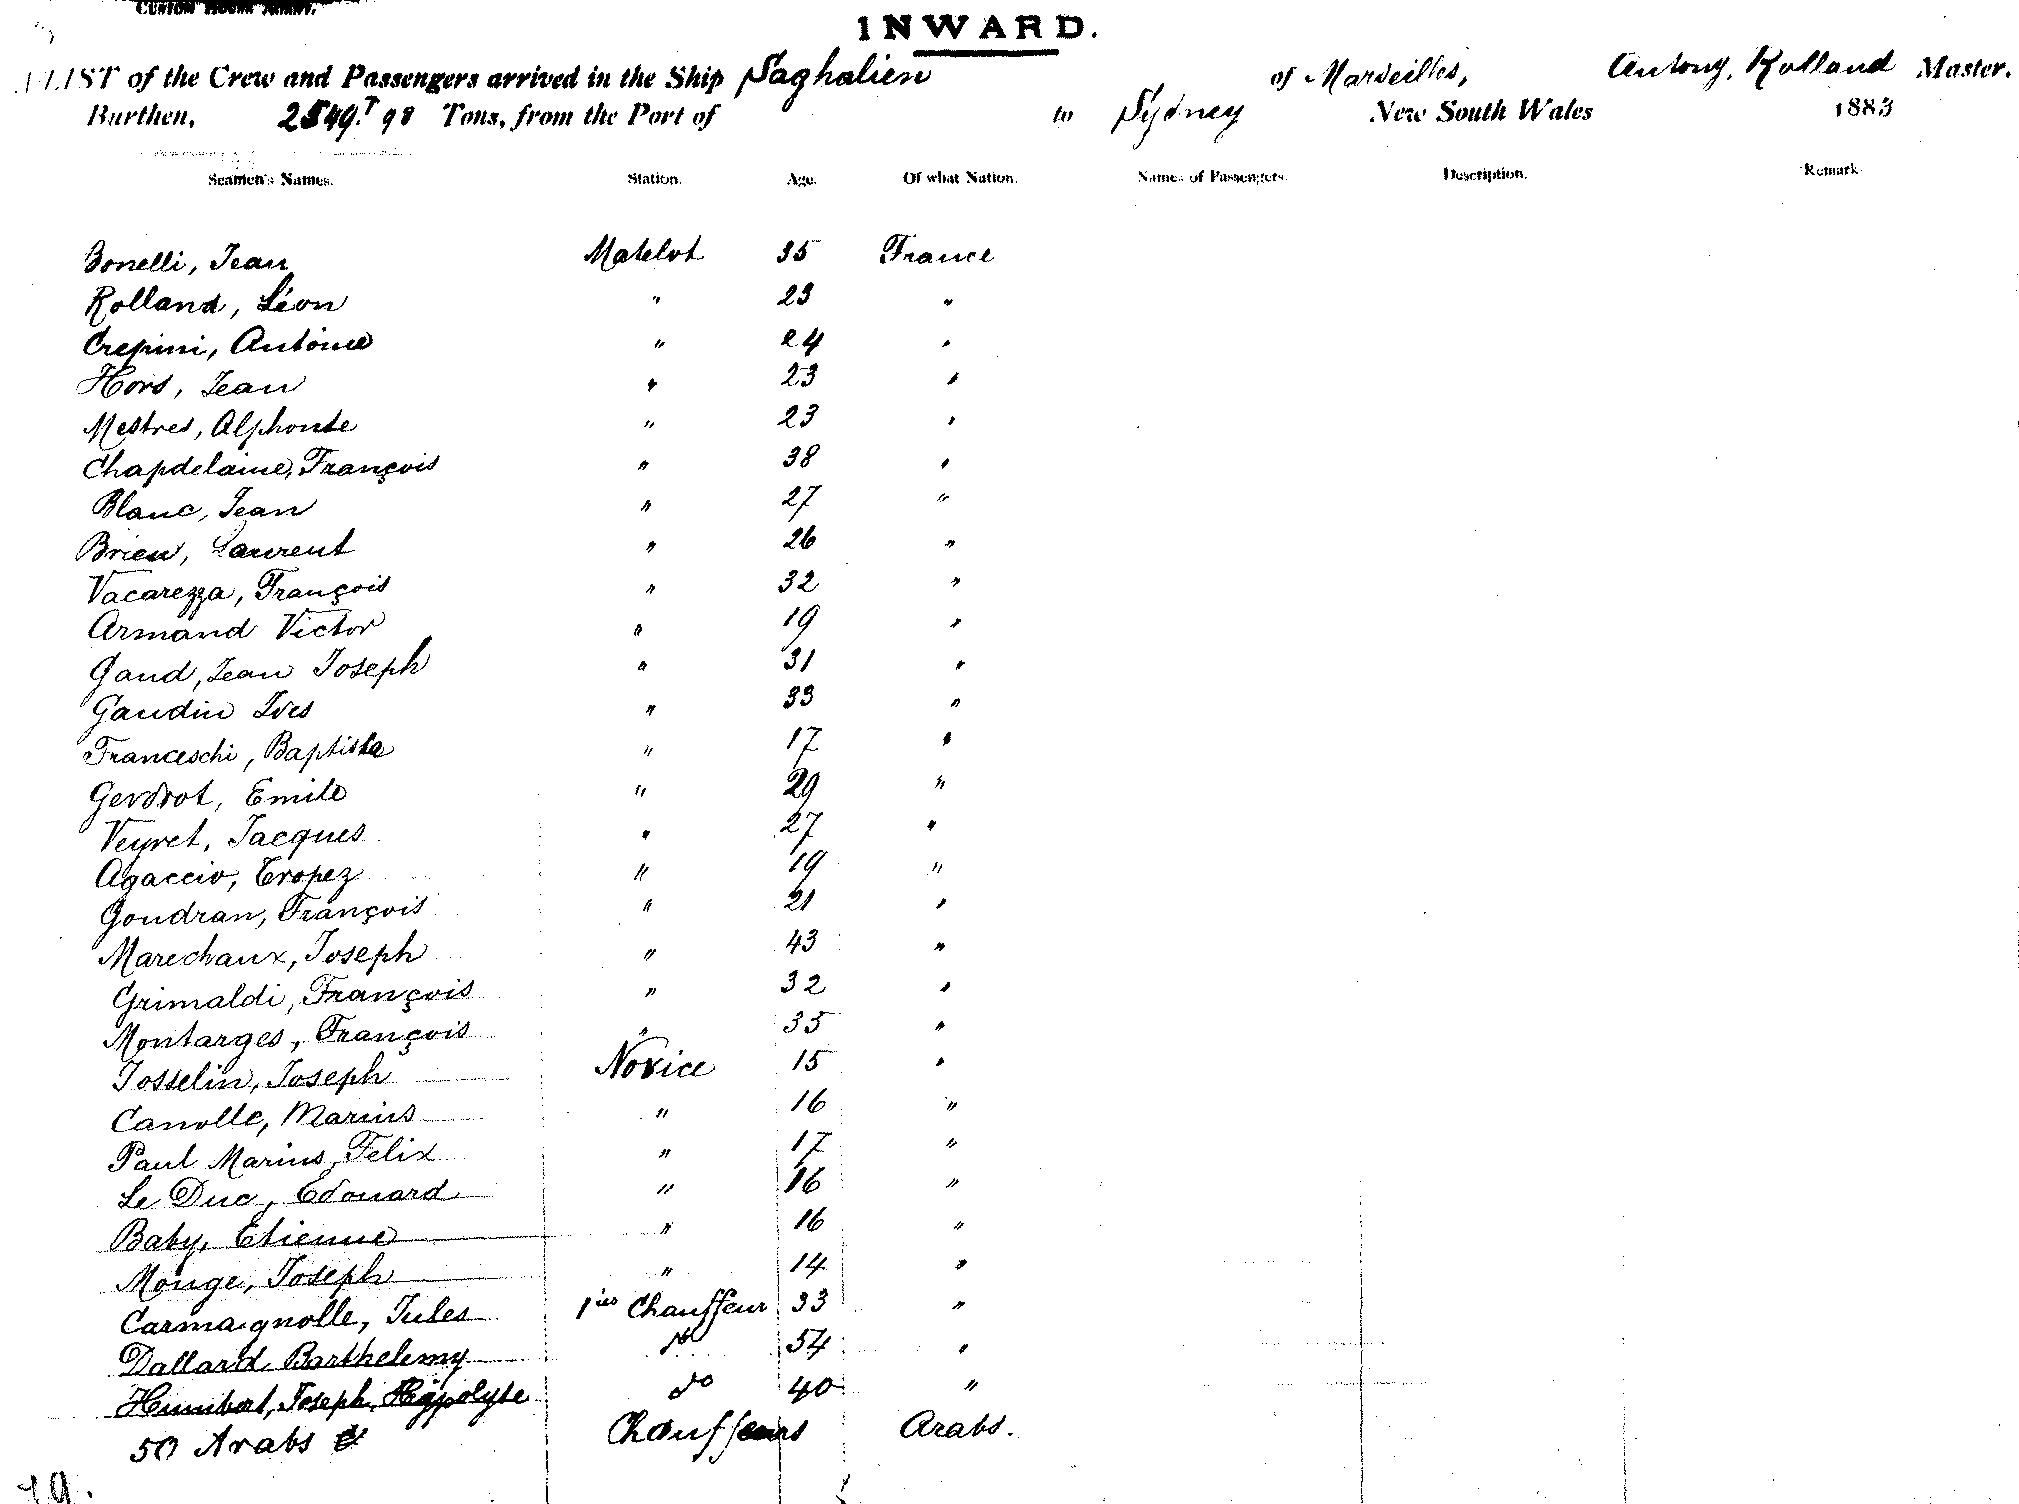 CUSTOM HOUSE
INWARD.
A LIST of the Crew and Passengers arrived in the Ship Saghalien of Marseilles, Antony, Rolland Master.
Burthen, 2549.T 98 Tons, from the Port of to Sydney New South Wales 1883
Seamen's Names. Station. Age. Of what Nation. Names of Passengers. Description. Remark
Bonelli, Jean Matelot 35 France
Rolland, Léon " 23 "
Crepini, Antoine " 24 "
Hors, Jean " 23 "
Mestres, Alphonse " 23 "
Chapdelaine, François " 38 "
Blanc, Jean " 27 "
Brieu, Laurent " 26 "
Vacarezza, François " 32 "
Armand Victor " 19 "
Gaud, Jean Joseph " 31 "
Gaudin Ives " 33 "
Franceschi, Baptiste " 17 "
Gerdrot, Emile " 29 "
Veyret, Jacques " 27 "
Agaccio, Tropez " 19 "
Goudran, François " 21 "
Marechaux, Joseph " 43 "
Grimaldi, François " 32 "
Montarges, François " 35 "
Josselin, Joseph Novice 15 "
Canolle, Marius " 16 "
Paul Marius, Felix " 17 "
Le Duc, Edouard " 16 "
Baby, Etienne " 16 "
Monge, Joseph " 14 "
Carmagnolle, Jules 1ier Chauffeur 33 "
Dallard Barthelemy do 54 "
Humbert, Joseph, Hippolyte do 40 "
50 Arabs Chauffeurs Arabs.
79.